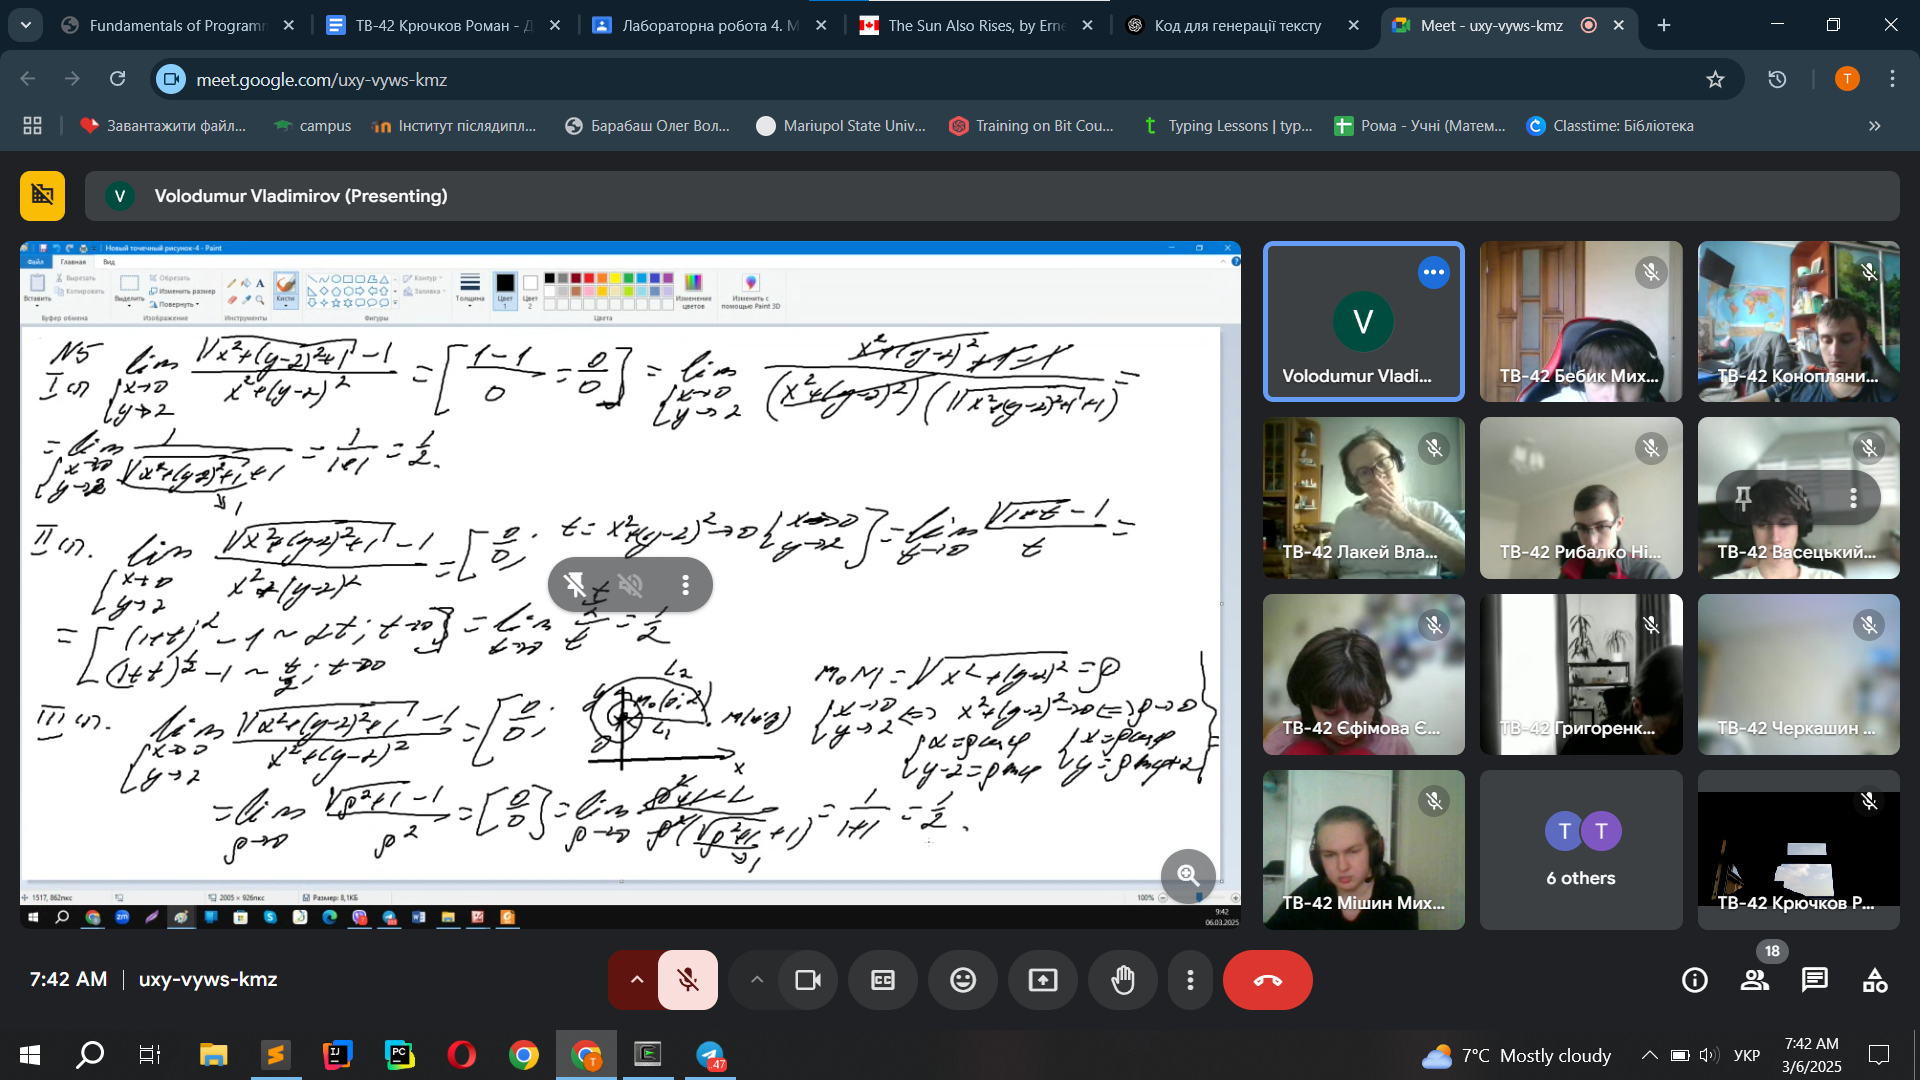 Fundamentals of Programm
ТВ-42 Крючков Роман - Д
Лабораторна робота 4. М
The Sun Also Rises, by Erne
Код для генерації тексту
Meet - uxy-vyws-kmz
meet.google.com/uxy-vyws-kmz
T
Завантажити файл...
campus
Інститут післядипл...
Барабаш Олег Вол...
Mariupol State Univ...
Training on Bit Cou...
Typing Lessons | typ...
Рома - Учні (Матем...
Classtime: Бібліотека
V
Volodumur Vladimirov (Presenting)
Новый точечный рисунок-4 - Paint
Файл Главная Вид
Вставить
Вырезать
Копировать
Буфер обмена
Выделить
Обрезать
Изменить размер
Повернуть
Изображение
Инструменты
Кисти
Контур
Заливка
Фигуры
Толщина
Цвет 1
Цвет 2
Изменение цветов
Цвета
Изменить с помощью Paint 3D
N5
I сп. lim {x→0 y→2 (√(x²+(y-2)²+1) - 1)/(x²+(y-2)²) = [(1-1)/0 = 0/0] = lim {x→0 y→2 (x²+(y-2)²+1-1)/((x²+(y-2)²)(√(x²+(y-2)²+1)+1)) =
= lim {x→0 y→2 1/(√(x²+(y-2)²+1)+1) = 1/(1+1) = 1/2.
→1
II сп. lim {x→0 y→2 (√(x²+(y-2)²+1) - 1)/(x²+(y-2)²) = [0/0; t = x²+(y-2)²→0 {x→0 y→2] = lim t→0 (√(1+t) - 1)/t =
= [(1+t)^α - 1 ~ αt; t→0
(1+t)^(1/2) - 1 ~ t/2; t→0] = lim t→0 (t/2)/t = 1/2
III сп. lim {x→0 y→2 (√(x²+(y-2)²+1) - 1)/(x²+(y-2)²) = [0/0;
y
L2
M0(0;2)
L1
M(x;y)
0
x
M0M = √(x²+(y-2)²) = ρ
{x→0 y→2 <=> x²+(y-2)²→0 <=> ρ→0
{x=ρcosφ y-2=ρsinφ {x=ρcosφ y=ρsinφ+2 =
= lim ρ→0 (√(ρ²+1) - 1)/ρ² = [0/0] = lim ρ→0 (ρ²+1-1)/(ρ²(√(ρ²+1)+1)) = 1/(1+1) = 1/2.
→1
1517, 862пкс
2005 × 926пкс
Размер: 8,1КБ
100%
9:42
06.03.2025
V
Volodumur Vladi...
ТВ-42 Бебик Мих...
ТВ-42 Конопляни...
ТВ-42 Лакей Вла...
ТВ-42 Рибалко Ні...
ТВ-42 Васецький...
ТВ-42 Єфімова Є...
ТВ-42 Григоренк...
ТВ-42 Черкашин ...
ТВ-42 Мішин Мих...
T T
6 others
ТВ-42 Крючков Р...
7:42 AM | uxy-vyws-kmz
18
47
7°C Mostly cloudy
УКР
7:42 AM
3/6/2025